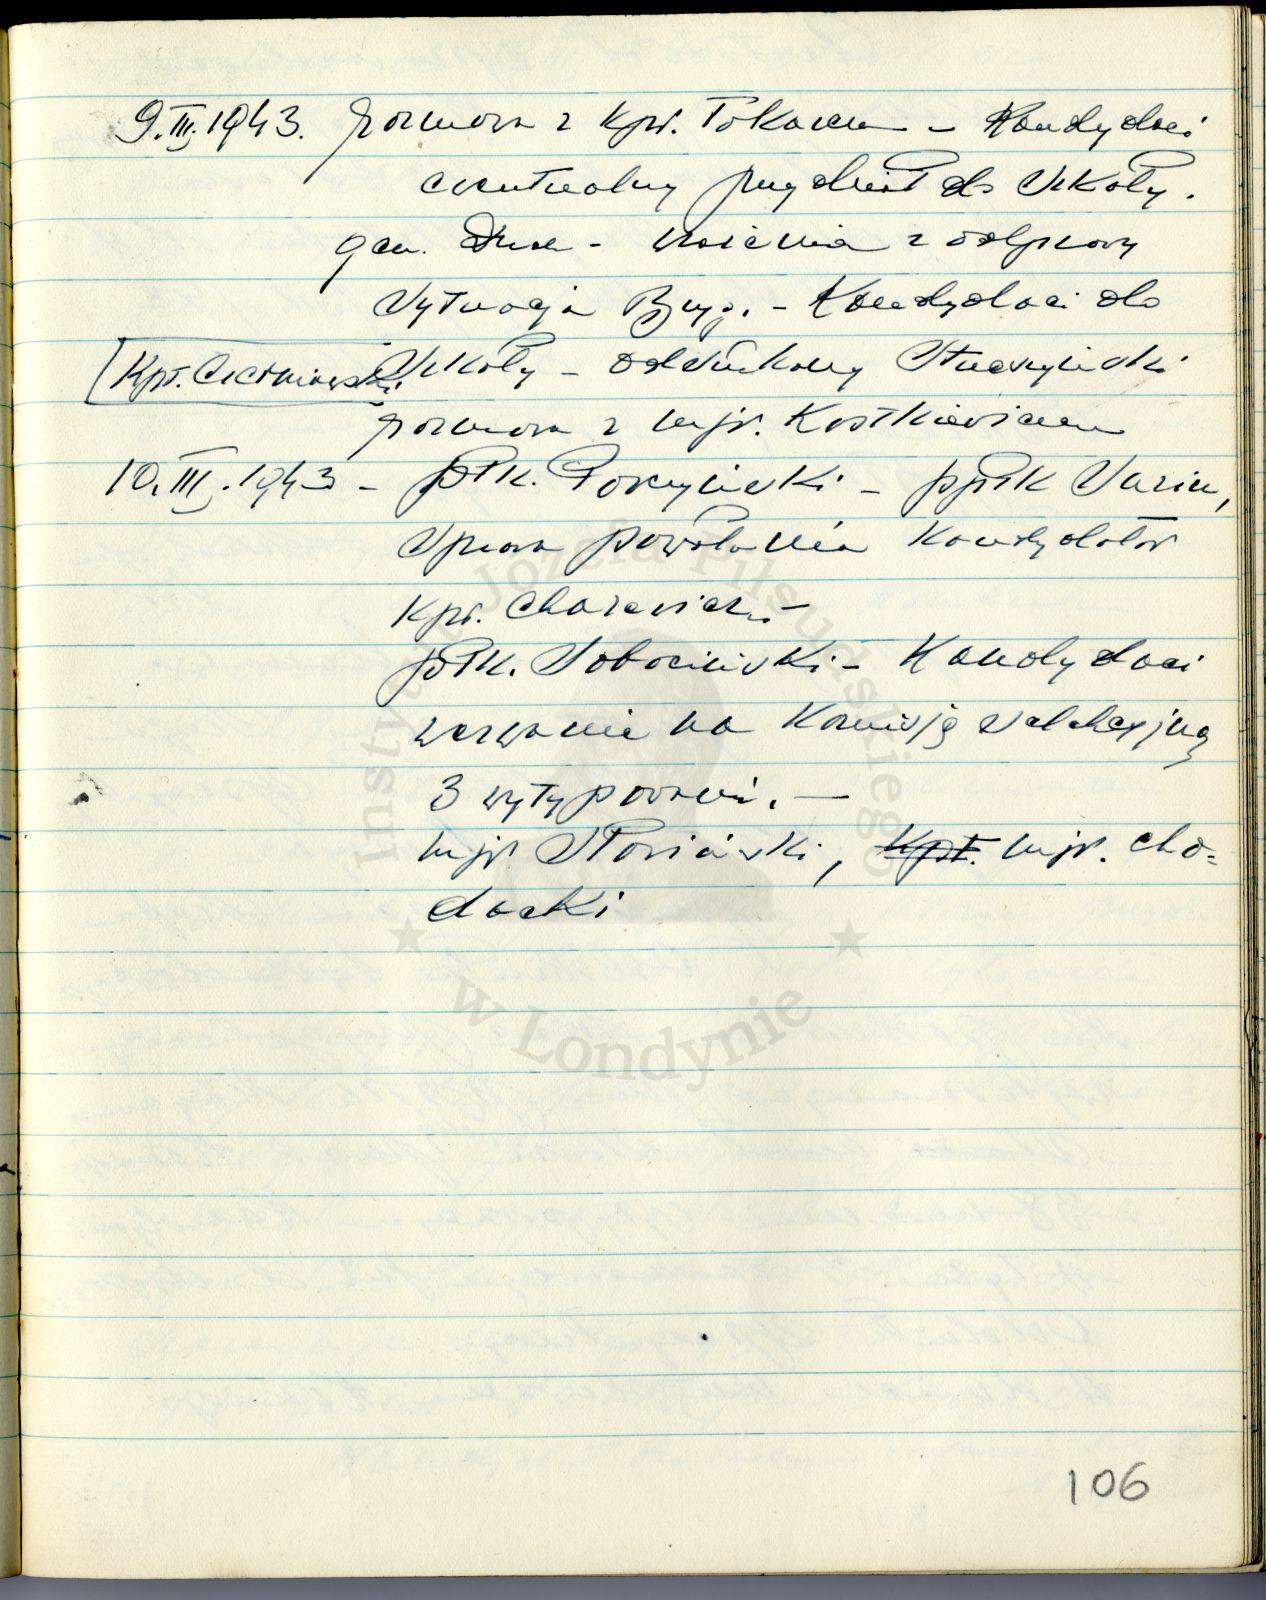 9.III.1943. Rozmowa z kpt. Tokarem – Kandydaci
ewentualny przydział do Szkoły.
gen. Duch – wrażenia z odprawy
Sytuacja Bryg. – Kandydaci do
Kpt. Szkoły – odczukowy
Rozmowa z mjr. Kostkiewiczem
10.III.1943 – płk. – ppłk
Sprawa powołania Kandydatów
kpt.
płk. Sobociński – Kandydaci
wezwanie na Komisję selekcyjną
3 wytypowani. —
mjr Słowiński, kpt. mjr. Cho=
dacki
Instytut Józefa Piłsudskiego
w Londynie
106